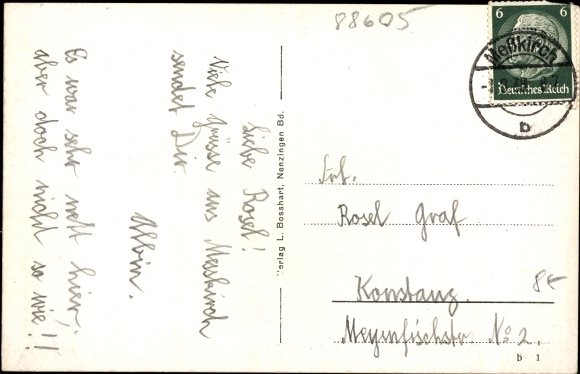 88605
6 6
Meßkirch
Deutsches Reich
b
Liebe Rosel!
Viele Grüsse aus Messkirch
sendet Dir
Albin.
Es war sehr nett hier,
aber doch nicht so wie!!
Verlag L. Bosshart, Nenzingen Bd.
Frl.
Rosel Graf
Konstanz.
8€
Meyenfischstr. No 2.
b 1